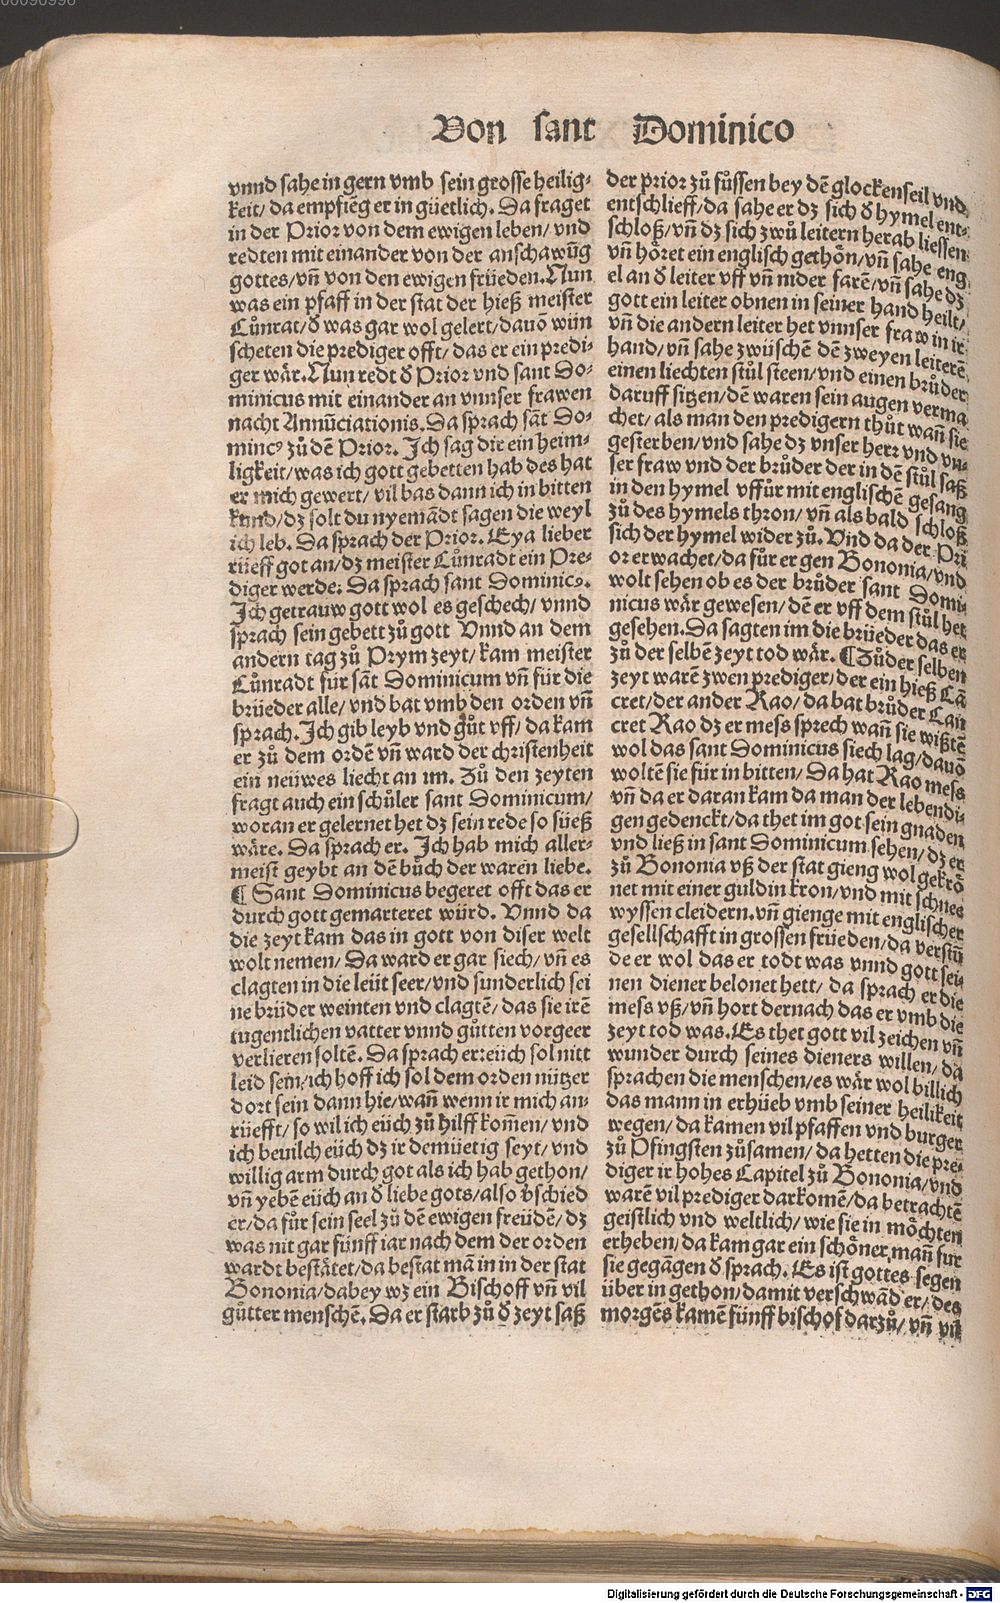 Von sant Dominico
vnnd sahe in gern vmb sein grosse heilig⸗
keit/ da empfieng er in güetlich. Da fraget
in der Prior von dem ewigen leben/ vnd
redten mit einander von der anschawūg
gottes/ vñ von den ewigen früeden. Nun
was ein pfaff in der stat der hieß meister
Cůnrat/ ð was gar wol gelert/ dauō wün
scheten die prediger offt/ das er ein predi⸗
ger wär. Nun redt ð Prior vnd sant Do⸗
minicus mit einander an vnnser frawen
nacht Annūciationis. Da sprach sāt Do⸗
mincꝰ zů dē Prior. Ich sag dir ein heim⸗
ligkeit/ was ich gott gebetten hab des hat
er mich gewert/ vil bas dann ich in bitten
kund/ dz solt du nyemādt sagen die weyl
ich leb. Da sprach der Prior. Eya lieber
rüeff got an/ dz meister Cůnradt ein Pre⸗
diger werde: Da sprach sant Dominicꝰ.
Ich getrauw gott wol es geschech/ vnnd
sprach sein gebett zů gott Vnnd an dem
andern tag zů Prym zeyt/ kam meister
Cůnradt für sāt Dominicum vñ für die
brüeder alle/ vnd bat vmb den orden vñ
sprach. Ich gib leyb vnd gůt vff/ da kam
er zů dem ordē vñ ward der christenheit
ein neüwes liecht an im. Zů den zeyten
fragt auch ein schůler sant Dominicum/
woran er gelernet het dz sein rede so süeß
wäre. Da sprach er. Ich hab mich aller⸗
meist geybt an dē bůch der waren liebe.
¶ Sant Dominicus begeret offt das er
durch gott gemarteret würd. Vnnd da
die zeyt kam das in gott von diser welt
wolt nemen/ Da ward er gar siech/ vñ es
clagten in die leüt seer/ vnd sunderlich sei
ne brüder weinten vnd clagtē/ das sie irē
tugentlichen vatter vnnd gůtten vorgeer
verlieren soltē. Da sprach er reüch sol nitt
leid sein/ ich hoff ich sol dem orden nützer
dort sein dann hie/ wañ wenn ir mich an⸗
rüefft/ so wil ich eüch zů hilff kom̄en/ vnd
ich beuilch eüch dz ir demüetig seyt/ vnd
willig arm durch got als ich hab gethon/
vñ yebē eüch an ð liebe gots/ also v̓schied
er/ da für sein seel zů dē ewigen freüdē/ dz
was nit gar fünff iar nach dem der orden
wardt bestätet/ da bestat mā in in der stat
Bononia/ dabey wz ein Bischoff vñ vil
gůtter menschē. Da er starb zů ð zeyt saß
der prior zů fůssen bey dē glockenseil vnd
entschlieff/ da sahe er dz sich ð hymel ent⸗
schloß/ vñ dz sich zwů leitern herab liessen
vñ höret ein englisch gethön/ vñ sahe eng
el an ð leiter vff vñ nider farē/ vñ sahe dz
gott ein leiter obnen in seiner hand heilt/
vñ die andern leiter het vnnser fraw in ir
hand/ vñ sahe zwüschē dē zweyen leiterē
einen liechten stůl steen/ vnd einen brůder
daruff sitzen/ dē waren sein augen verma
chet/ als man den predigern thůt wañ sie
gesterben/ vnd sahe dz vnser herr vnd vn⸗
ser fraw vnd der brůder der in dē stůl saß
in den hymel vffůr mit englischē gesang
zů des hymels thron/ vñ als bald schloß
sich der hymel wider zů. Vnd da der Pri
or erwachet/ da für er gen Bononia/ vnd
wolt sehen ob es der brůder sant Domi⸗
nicus wär gewesen/ dē er vff dem stůl het
gesehen. Da sagten im die brüeder das er
zů der selbē zeyt tod wär. ¶ Zů der selben
zeyt warē zwen prediger/ der ein hieß Cā
cret/ der ander Rao/ da bat brůder Can
cret Rao dz er mess sprech wañ sie wißtē
wol das sant Dominicus siech lag/ dauō
woltē sie für in bitten/ Da hat Rao mess
vñ da er daran kam da man der lebendi⸗
gen gedenckt/ da thet im got sein gnaden
vnd ließ in sant Dominicum sehen/ dz er
zů Bononia vß der stat gieng wol gekrō
net mit einer guldin kron/ vnd mit schnee
wyssen cleidern. vñ gienge mit englischer
gesellschafft in grossen früeden/ da verstū
de er wol das er todt was vnnd gott sei⸗
nen diener belonet hett/ da sprach er die
mess vß/ vñ hort dernach das er vmb die
zeyt tod was. Es thet gott vil zeichen vñ
wunder durch seines dieners willen/ da
sprachen die menschen/ es wär wol billich
das mann in erhüeb vmb seiner heilikeit
wegen/ da kamen vil pfaffen vnd burger
zů Pfingsten zůsamen/ da hetten die pre⸗
diger ir hohes Capitel zů Bononia/ vnd
warē vil prediger darkomē/ da betrachtē
geistlich vnd weltlich/ wie sie in möchten
erheben/ da kam gar ein schöner man̄ für
sie gegāgen ð sprach. Es ist gottes segen
über in gethon/ damit verschwād er/ des
morgēs kamē fünff bischof darzů/ vñ vil
Digitalisierung gefördert durch die Deutsche Forschungsgemeinschaft - DFG